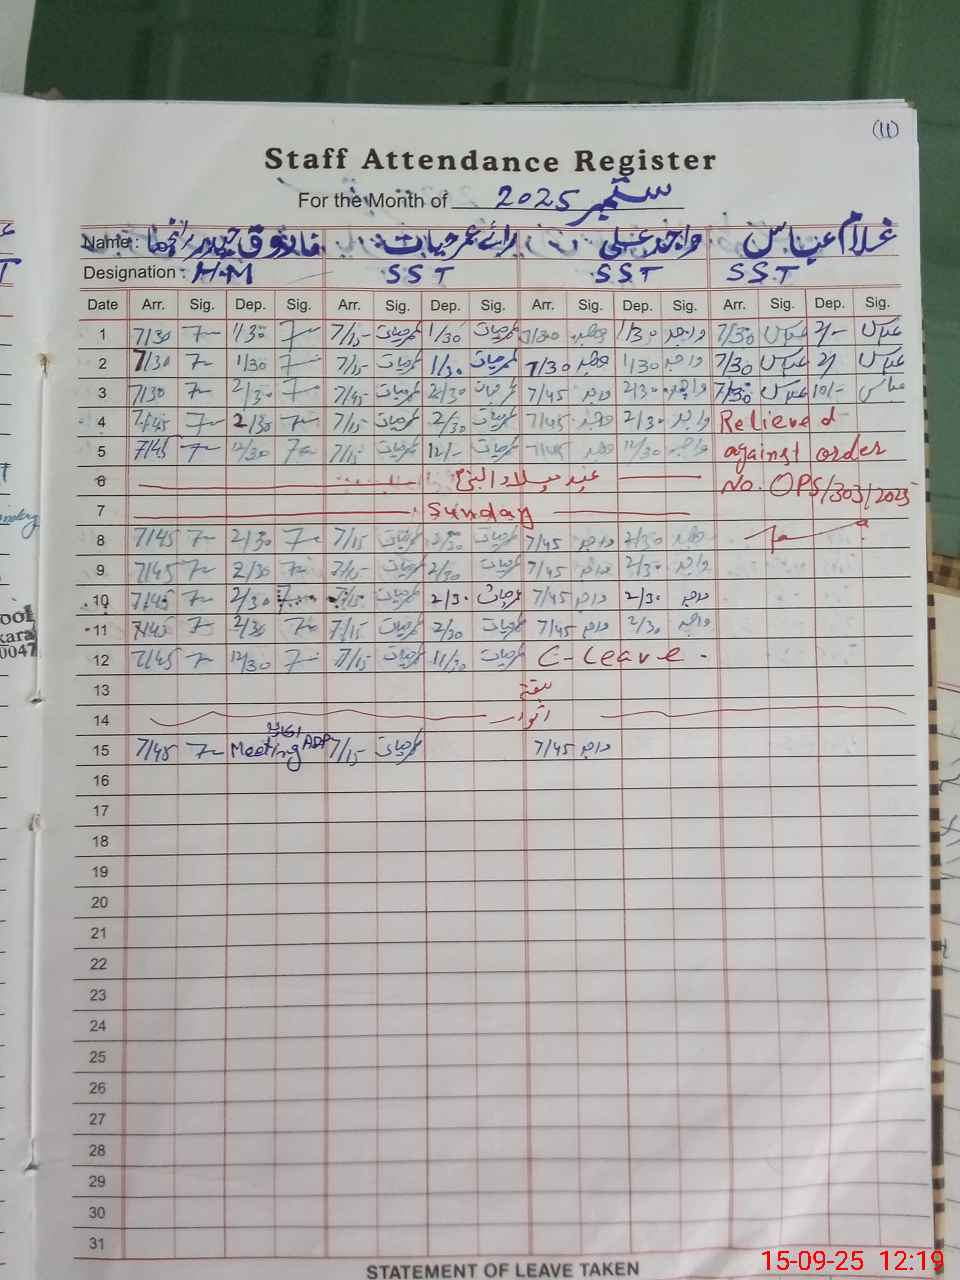 (11)
Staff Attendance Register
For the Month of ستمبر 2025
Name: فاروق حیدر رائے عمر حیات واجد علی غلام عباس
Designation: H.M SST SST SST
Date Arr. Sig. Dep. Sig. Arr. Sig. Dep. Sig. Arr. Sig. Dep. Sig. Arr. Sig. Dep. Sig.
1 7/30 1/30 7/15 عمرحیات 1/30 عمرحیات 7/30 واجد 1/30 واجد 7/30 عباس 2/- عباس
2 7/30 1/30 7/15 عمرحیات 1/30 عمرحیات 7/30 واجد 1/30 واجد 7/30 عباس 2/ عباس
3 7/30 2/30 7/45 عمرحیات 2/30 عمرحیات 7/45 واجد 2/30 واجد 7/30 عباس 10/- عباس
4 7/45 2/30 7/15 عمرحیات 2/30 عمرحیات 7/45 واجد 2/30 واجد Relieved
5 7/45 12/30 7/15 عمرحیات 12/- عمرحیات 7/45 واجد 12/30 واجد against order
6 عید میلاد النبی No. OPS/303/2025
7 Sunday
8 7/45 2/30 7/15 عمرحیات 2/30 عمرحیات 7/45 واجد 2/30 واجد
9 7/45 2/30 7/15 عمرحیات 2/30 عمرحیات 7/45 واجد 2/30 واجد
10 7/45 2/30 7/15 عمرحیات 2/30 عمرحیات 7/45 واجد 2/30 واجد
11 7/45 2/30 7/15 عمرحیات 2/30 عمرحیات 7/45 واجد 2/30 واجد
12 7/45 12/30 7/15 عمرحیات 11/30 عمرحیات C-Leave.
13 ہفتہ
14 اتوار
15 7/45 Meeting 7/15 عمرحیات 7/45 واجد
16
17
18
19
20
21
22
23
24
25
26
27
28
29
30
31
STATEMENT OF LEAVE TAKEN
15-09-25 12:19